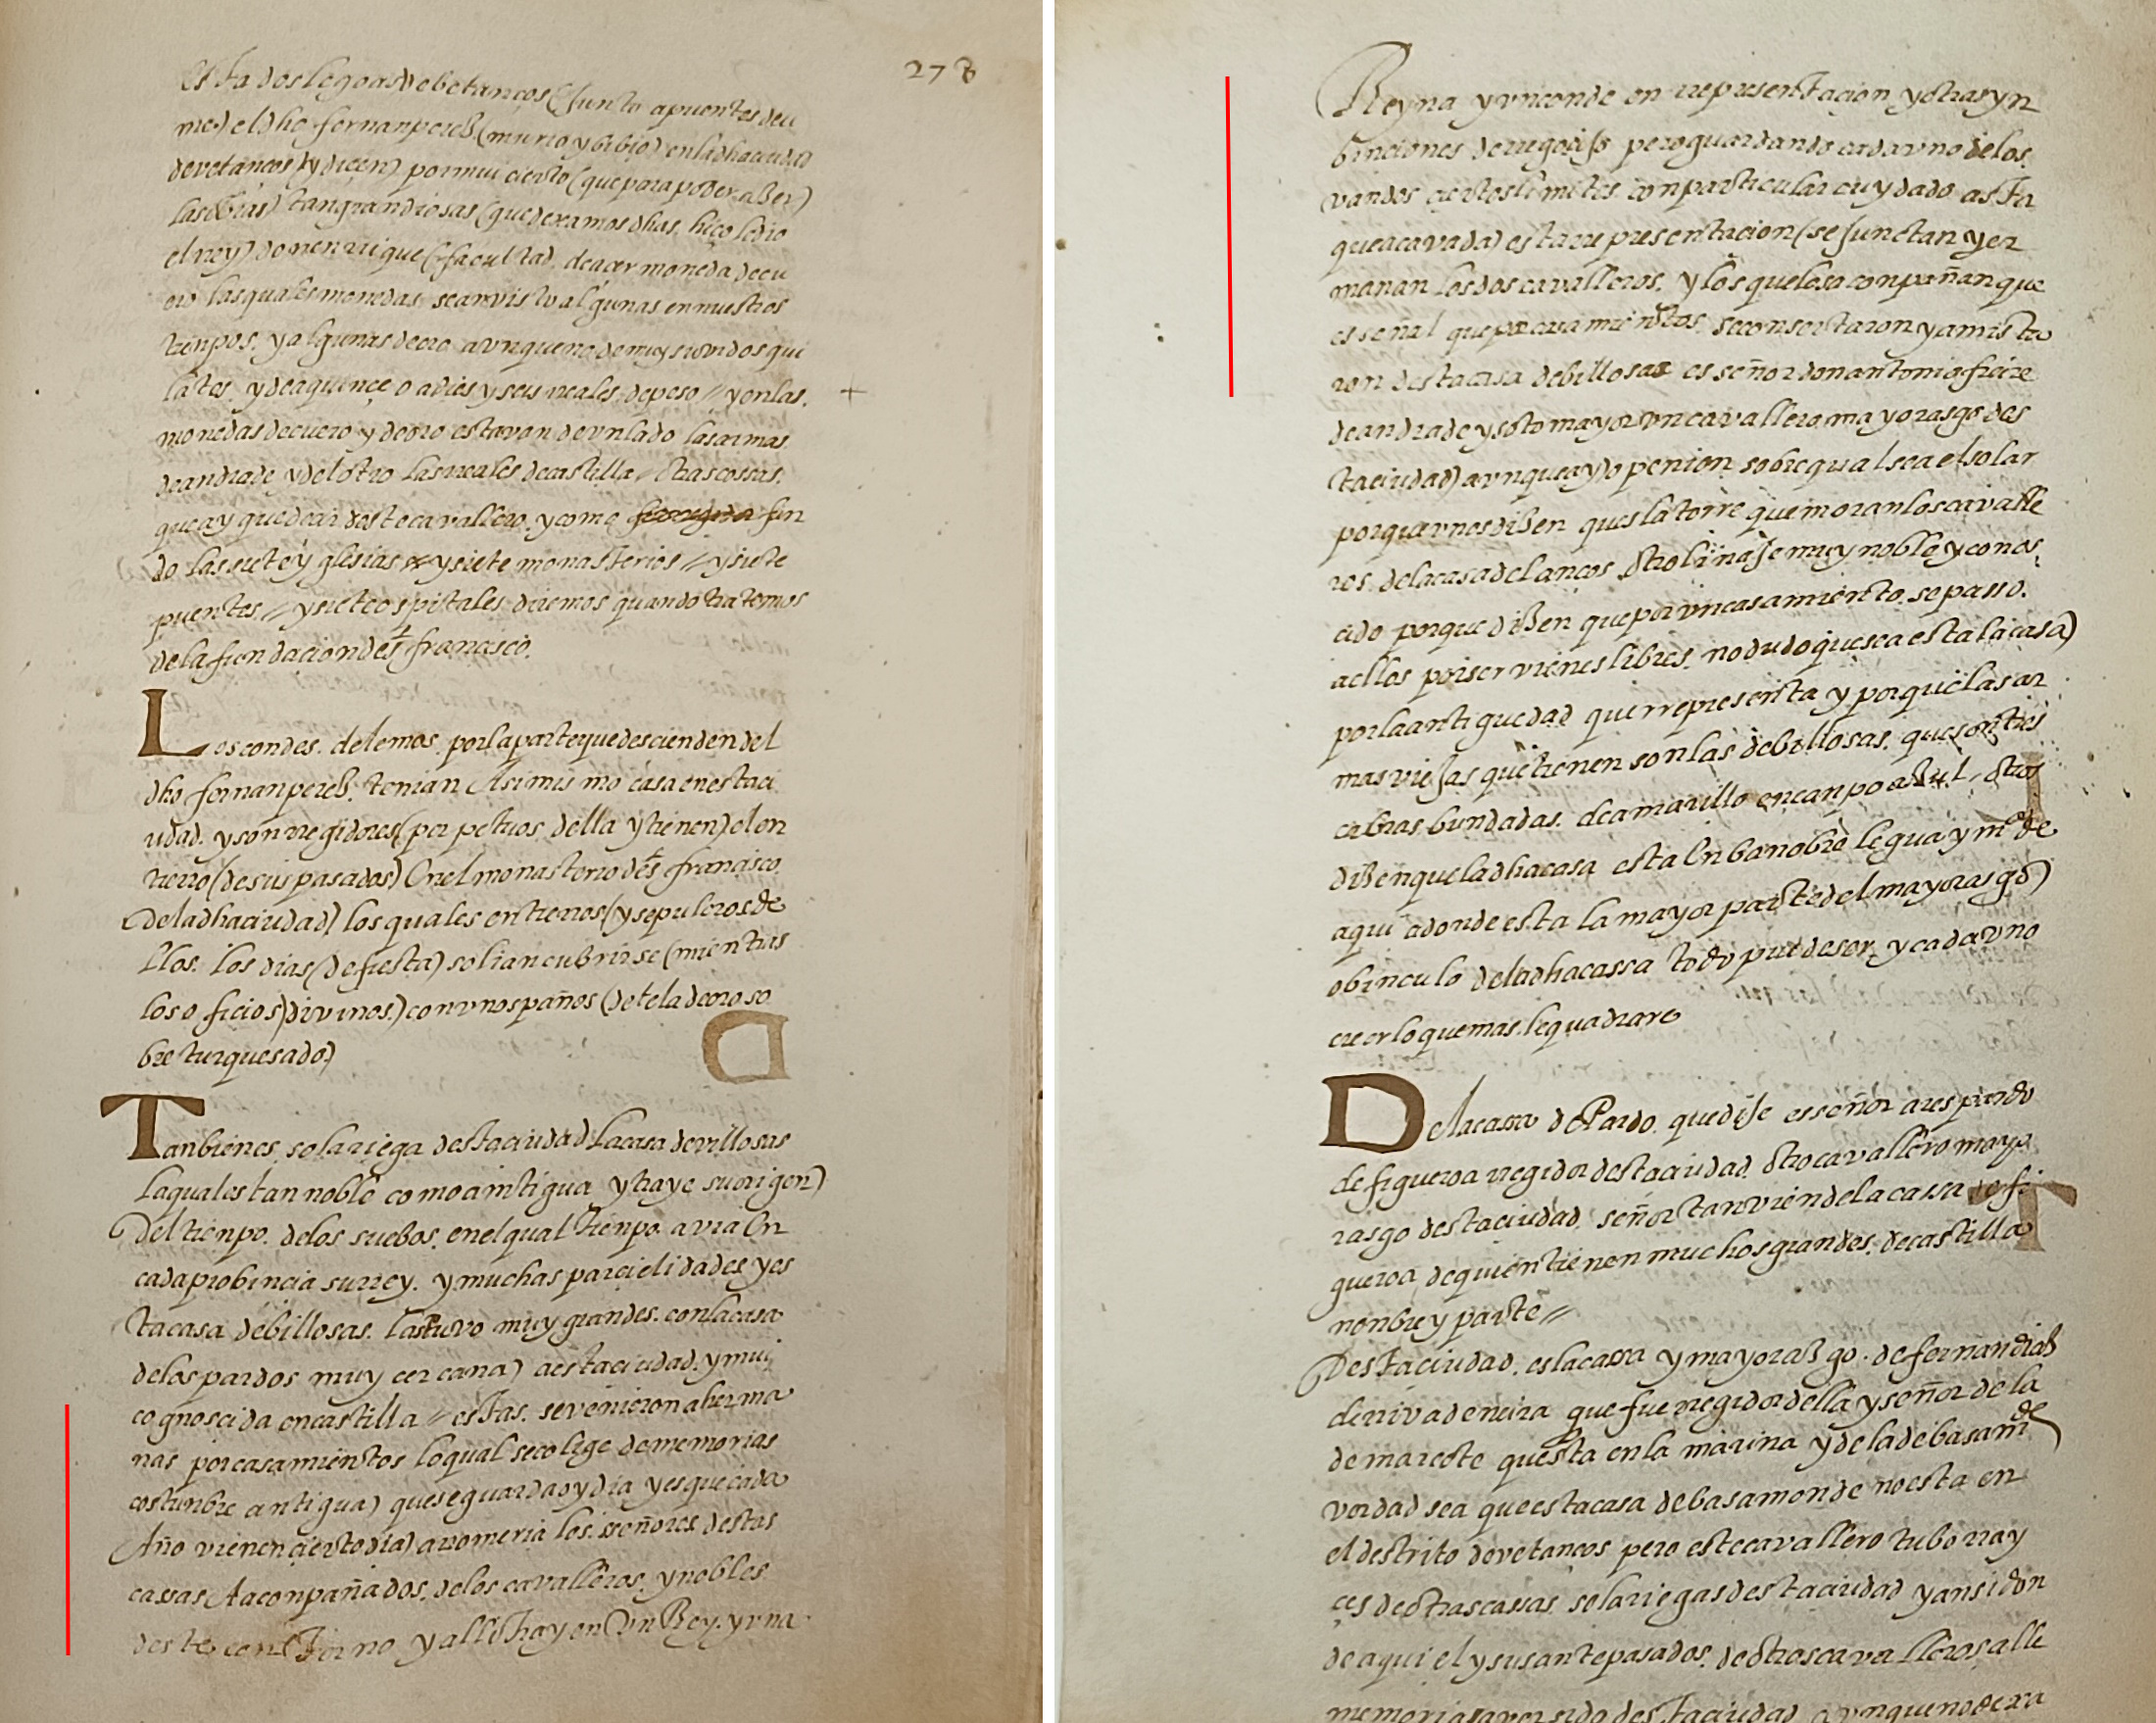 278
esta dos legoas de betanços (junto a puentes deu
me) el dho fernan perez (murio y bibio) en la dha ciudad
de vetancos (y dicen) por mui cierto (que para poder aBer)
las obras) tan grandiosas (que dexamos dhas. hiço le dio
el rey) don enrrique (facultad. de acer moneda de cu
ero las quales monedas se an visto algunas en nuestros
tienpos. y algunas de oro avnque no de muy suvidos qui
lates. y de a quinçe o a dies y seis reales. de peso // y en las.
monedas de cuero y de oro estavan de vn lado las armas.
de andrade y del otro las reales de castilla // otras cossas.
que ay que decir deste cavallero. y como fun
do las siete yglesias y siete monasterios // y siete
puentes // y siete ospitales. diremos quando tratemos
de la fundacion de st francisco.
Los condes. de lemos. por la parte que descienden del
dho fernan perez. tenian Asimismo casa en esta ci
udad. y son rregidores (perpetuos. della y tienen) el en
tierro (de sus pasados) En el monasterio de st francisco.
De la dha ciudad) los quales entierros (y sepulcros de
llos. los dias (de fiesta) solian cubrirse (mientras
los oficios) divinos.) con vnos paños (de tela de oro so
bre turquesado.)
Tanbien es solariega desta ciudad La casa de villosas
La qual es tan noble como antigua y traye su origen)
Del tienpo. de los suebos. en el qual tienpo. avia En
cada probincia su rrey. y muchas parcielidades y es
ta casa de billosas. las tuvo muy grandes. con la casa
de los pardos muy cercana) a esta ciudad. y mui
cognoscida en castilla // estas. se vinieron a herma
nar por casamientos lo qual se colige de memorias
costunbre antigua) que se guarda oy dia y es que cada
Año vienen cierto dia) a romeria los. señores destas
casas Aaconpañados. de los cavalleros. y nobles
deste contorno y alli tray en Vn Rey. y vna
Reyna y vn conde en rrepresentacion y otras yn
binciones de rregocijo pero guardando cada vno de los
vandos ciertos limites con particular cuydado asta
que acavada) esta rrepresentacion (se junctan y er
manan los dos cavalleros. y los que los aconpañan que
es señal que por casamientos. se consertaron y amista
ron desta casa de billosas es señor don antonio freire
de andrade y sotomayor vn cavallero mayorasgo des
ta ciudad) avnque ay) openion sobre qual sea el solar
porque vnos diSen ques la torre que moran los cavalle
ros. de la casa de lanços. otro linaje muy noble y conos
cido porque diSen que por vn casamiento. se passo.
a ellos por ser vienes libres. no dudo que sea esta la casa)
por la antiguedad que rrepresenta y porque las ar
mas viejas que tienen son las de billosas. que son tres
cabras bundadas. de amarillo en canpo aSul // otros
diSen que la dha casa esta En banobre legua y ma de
aqui adonde esta la mayor parte del mayorasgo)
o binculo de la dha cassa todo puede ser. y cada vno
creer lo que mas. le quadrare
De la casa de Pardo. que dije es señor ares pardo
de figueroa rregidor desta ciudad. otro cavallero mayo
rasgo desta ciudad. señor tanvien de la cassa de fi
gueroa de quien tienen muchos grandes. de castilla
nonbre y parte //
Desta ciudad. es la casa y mayorasgo. de fernan diaS
de rrivadeneira que fue rregidor della y señor de la
de marcote questa en la marina y de la de basamde
verdad sea que esta casa de basamonde no esta en
el destrito de vetancos pero este cavallero tubo rray
ces de otras cassas solariegas desta ciudad y ansi don
de aqui el y sus antepasados. de otros cavalleros alle
memoria aver sido desta ciudad avnque no dexa